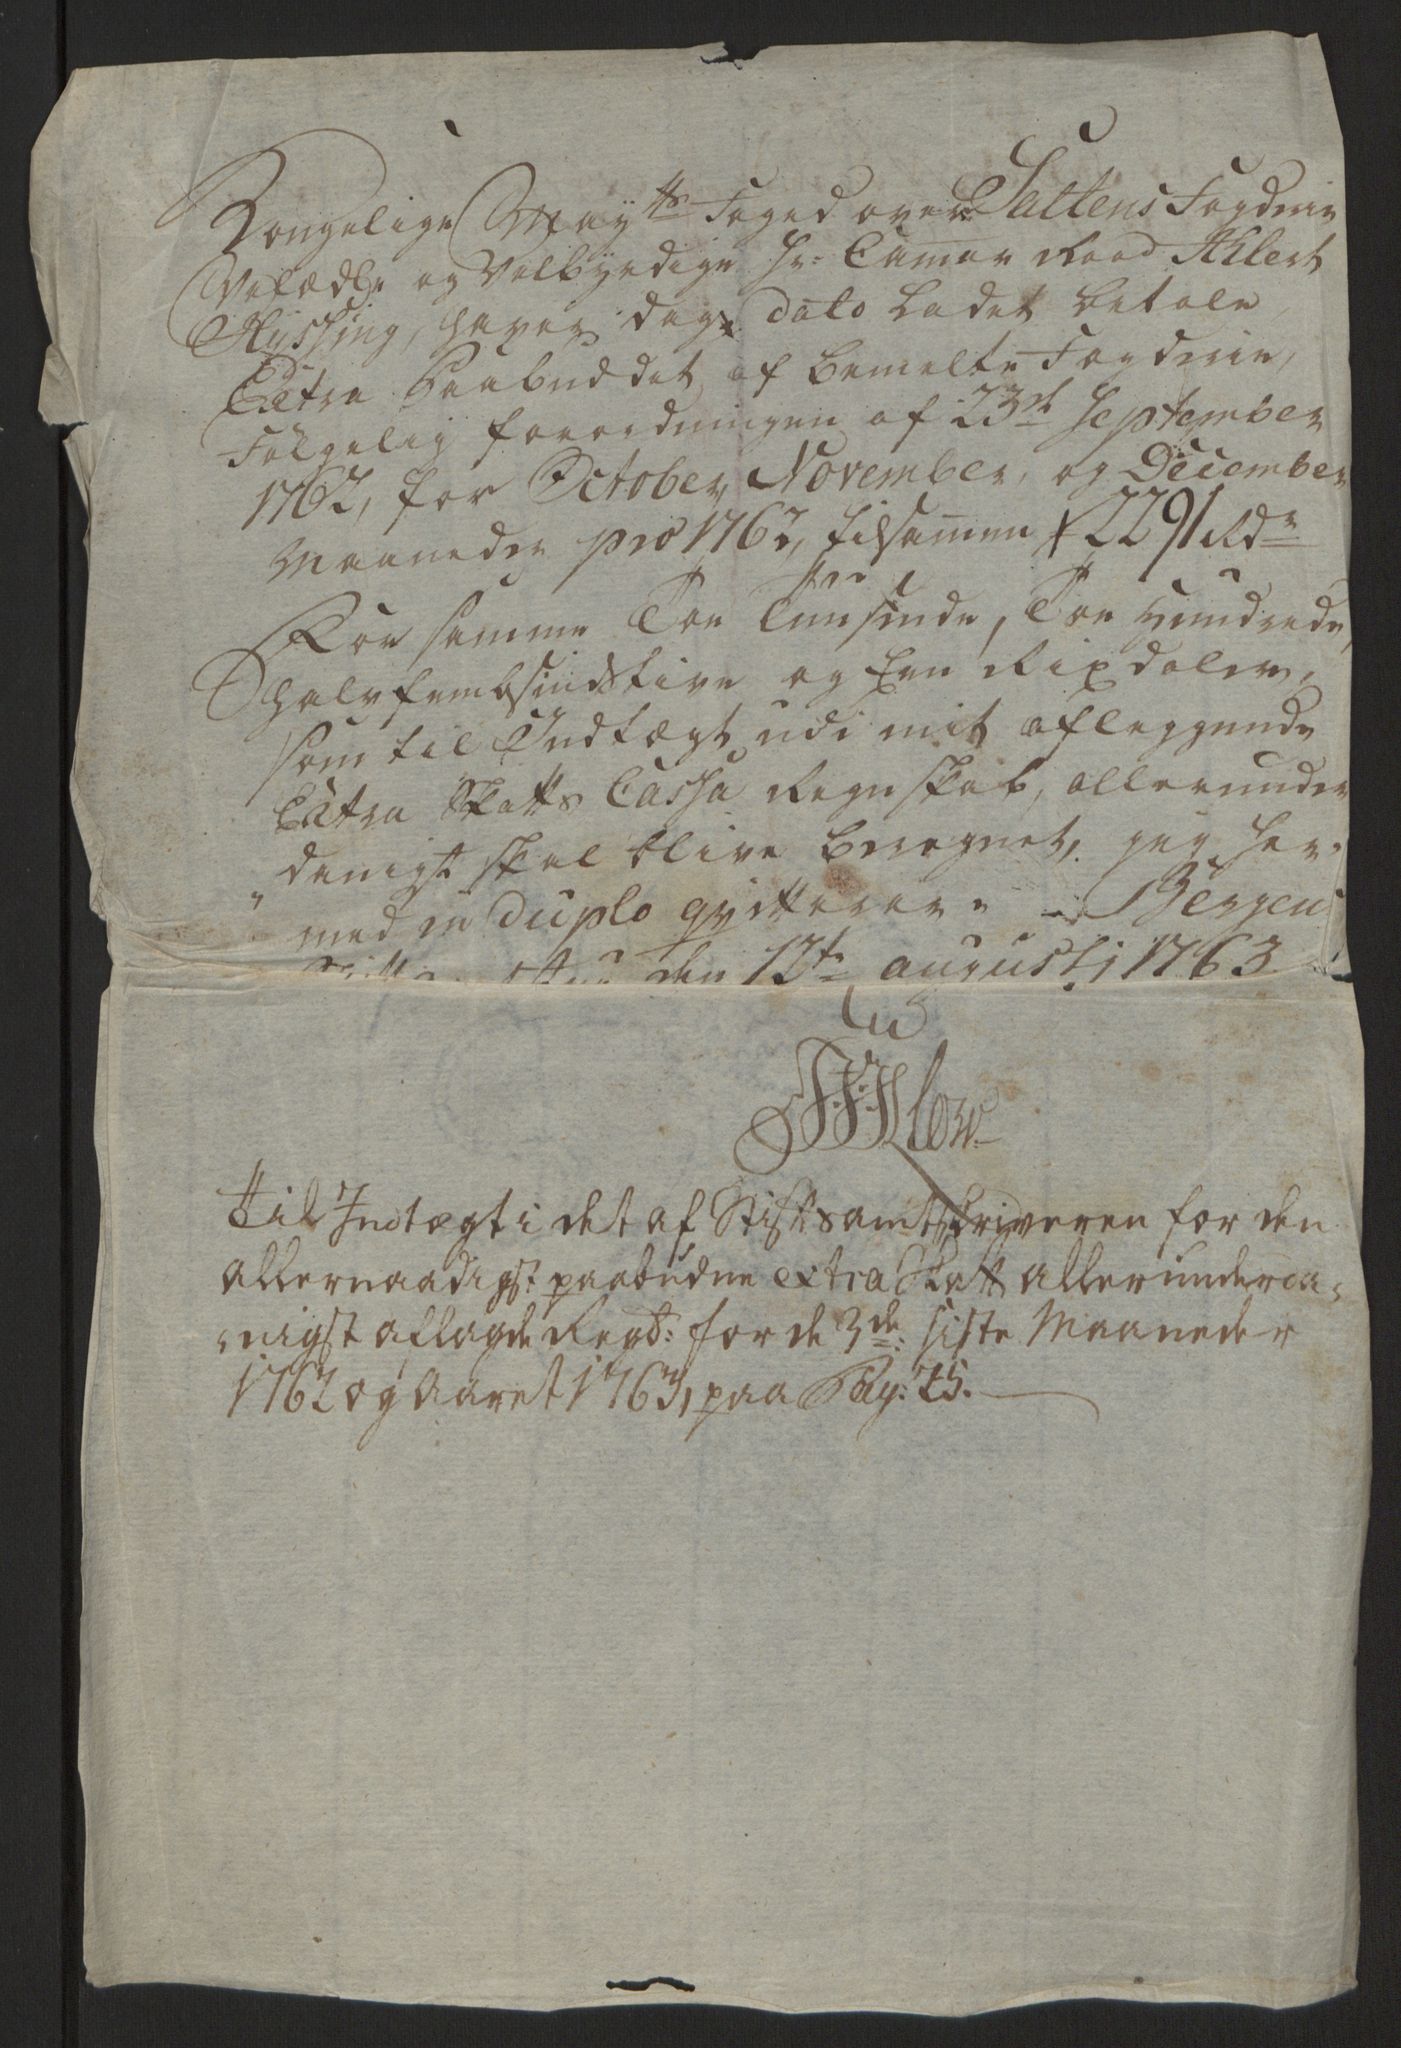 Kongelige Mayts Foged over Saltens Fogderie
Velædle og Velbyrdige Hr. Camer Raad Ahlert
Hyssing, haver dags dato ladet betale
Extra Paabuddet af bemelte Fogderie,
Følgelig forordningen af 23de September
1762, for October, November, og December
Maaneder pro 1762, tilsammen 2291 Rdr
siger
For samme Toe Tuusinde, Toe Hundrede,
halvfembsindstive og Een Rixdaler,
som til Indtægt udi mit aflæggende
Extra Skatts Cassa Regnskab, allerunder
danigst skal blive beregnet, jeg her-
med in Duplo qvitterer. Bergens
den 12te augusti 1763
Klow
Til Indtægt i det af Stiftsamtskriveren for den
allernaadigst paabudne extra Skatt allerunderda-
nigst aflagde Regsk: for de 3de siste Maaneder
1762 og Aaret 1763, paa Pag: 25.